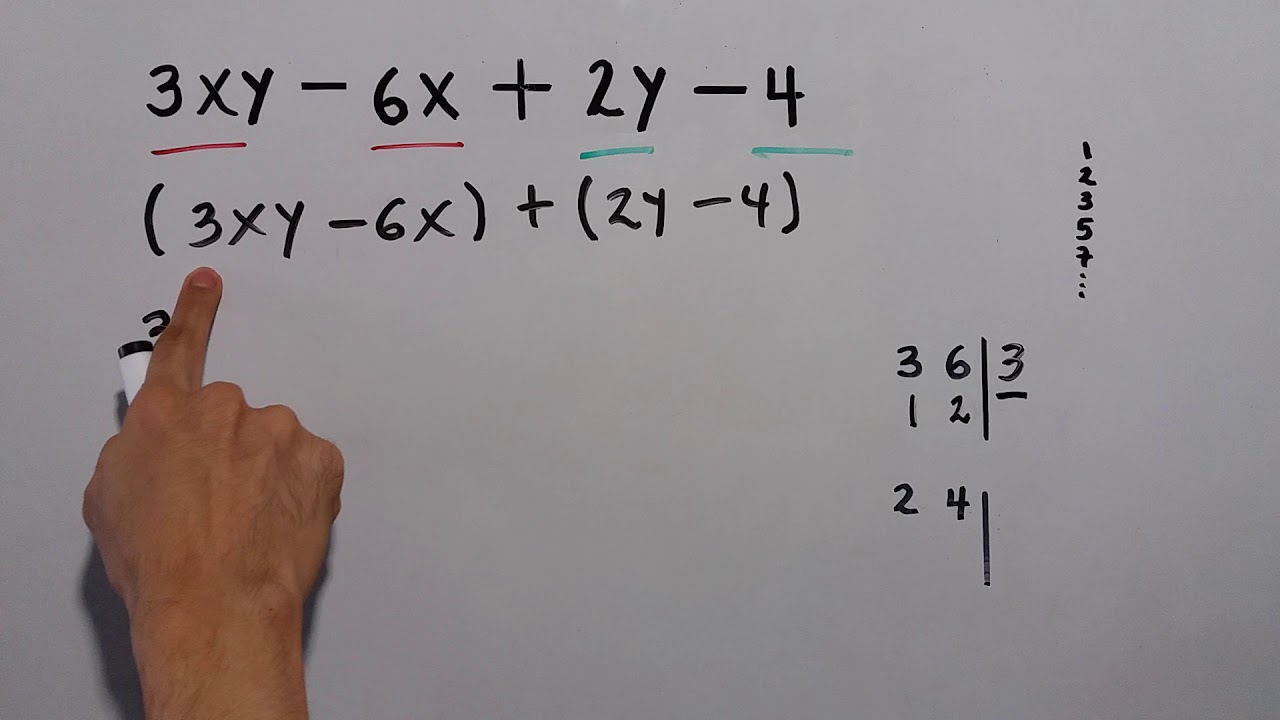 3xy - 6x + 2y - 4
(3xy - 6x) + (2y - 4)
3
1
2
3
5
7
⋮
3 6 | 3
1 2 |
2 4 |